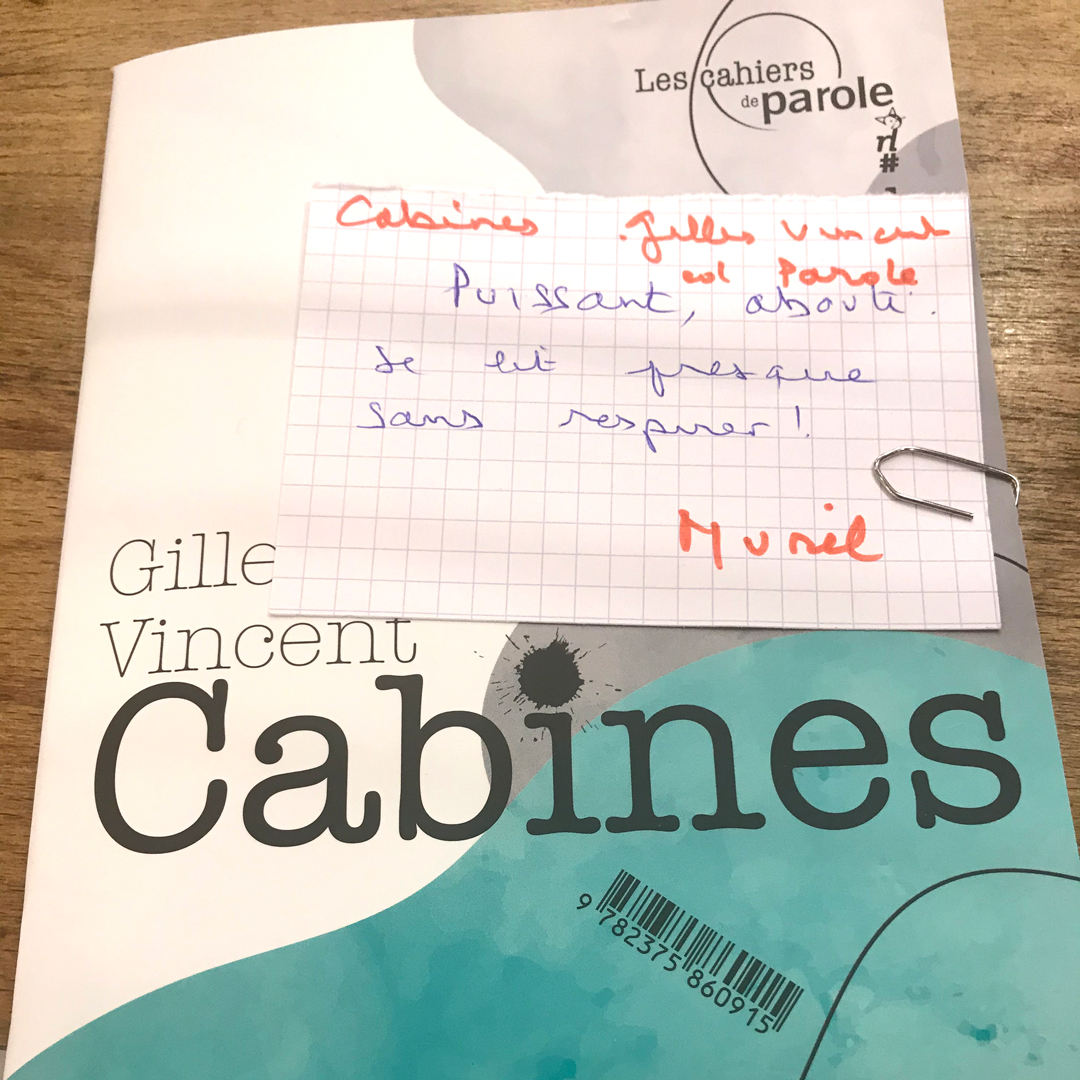 Les cahiers
de parole
#
Cabines . Gilles Vincent
col Parole
Puissant, abouti.
Se lit presque
sans respirer !
Muriel
Gille
Vincent
Cabines
9 782375 860915